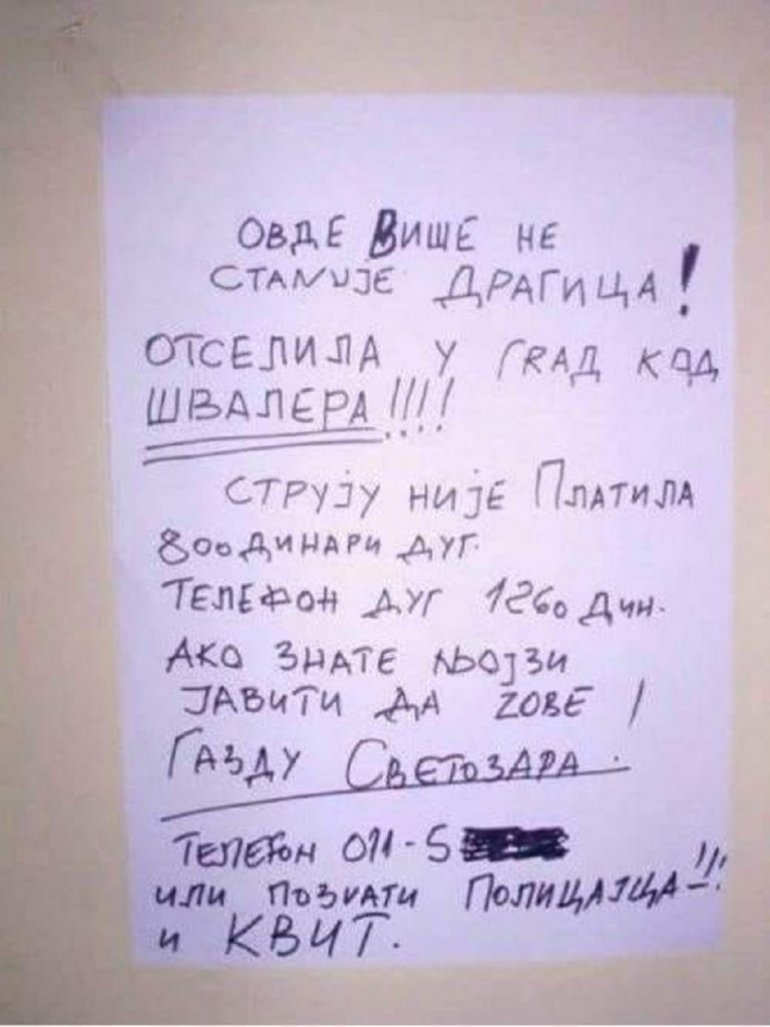 ОВДЕ ВИШЕ НЕ
СТАНУЈЕ ДРАГИЦА!
ОТСЕЛИЛА У ГРАД КОД
ШВАЛЕРА!!!!
СТРУЈУ НИЈЕ ПЛАТИЛА
800 ДИНАРИ ДУГ.
ТЕЛЕФОН ДУГ 1260 ДИН.
АКО ЗНАТЕ ЊОЈЗИ
ЈАВИТИ ДА ZОВЕ /
ГАЗДУ СВЕТОЗАРА.
ТЕЛЕФОН 011-5
ИЛИ ПОЗВАТИ ПОЛИЦАЈЦА-!!!
И КВИТ.